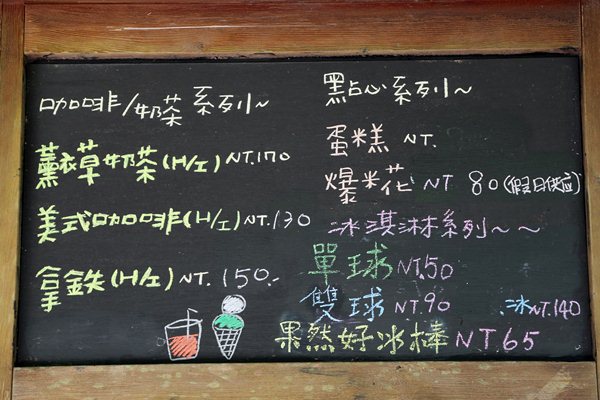 咖啡/奶茶 系列~
薰衣草奶茶(H/I) NT.170
美式咖啡(H/I) NT.130
拿鉄(H/I) NT. 150.-
點心系列~
蛋糕 NT.
爆米花 NT 80(假日供应)
冰淇淋系列~~
單球 NT.50
雙球 NT.90 .冰NT.140
果然好冰棒 NT.65